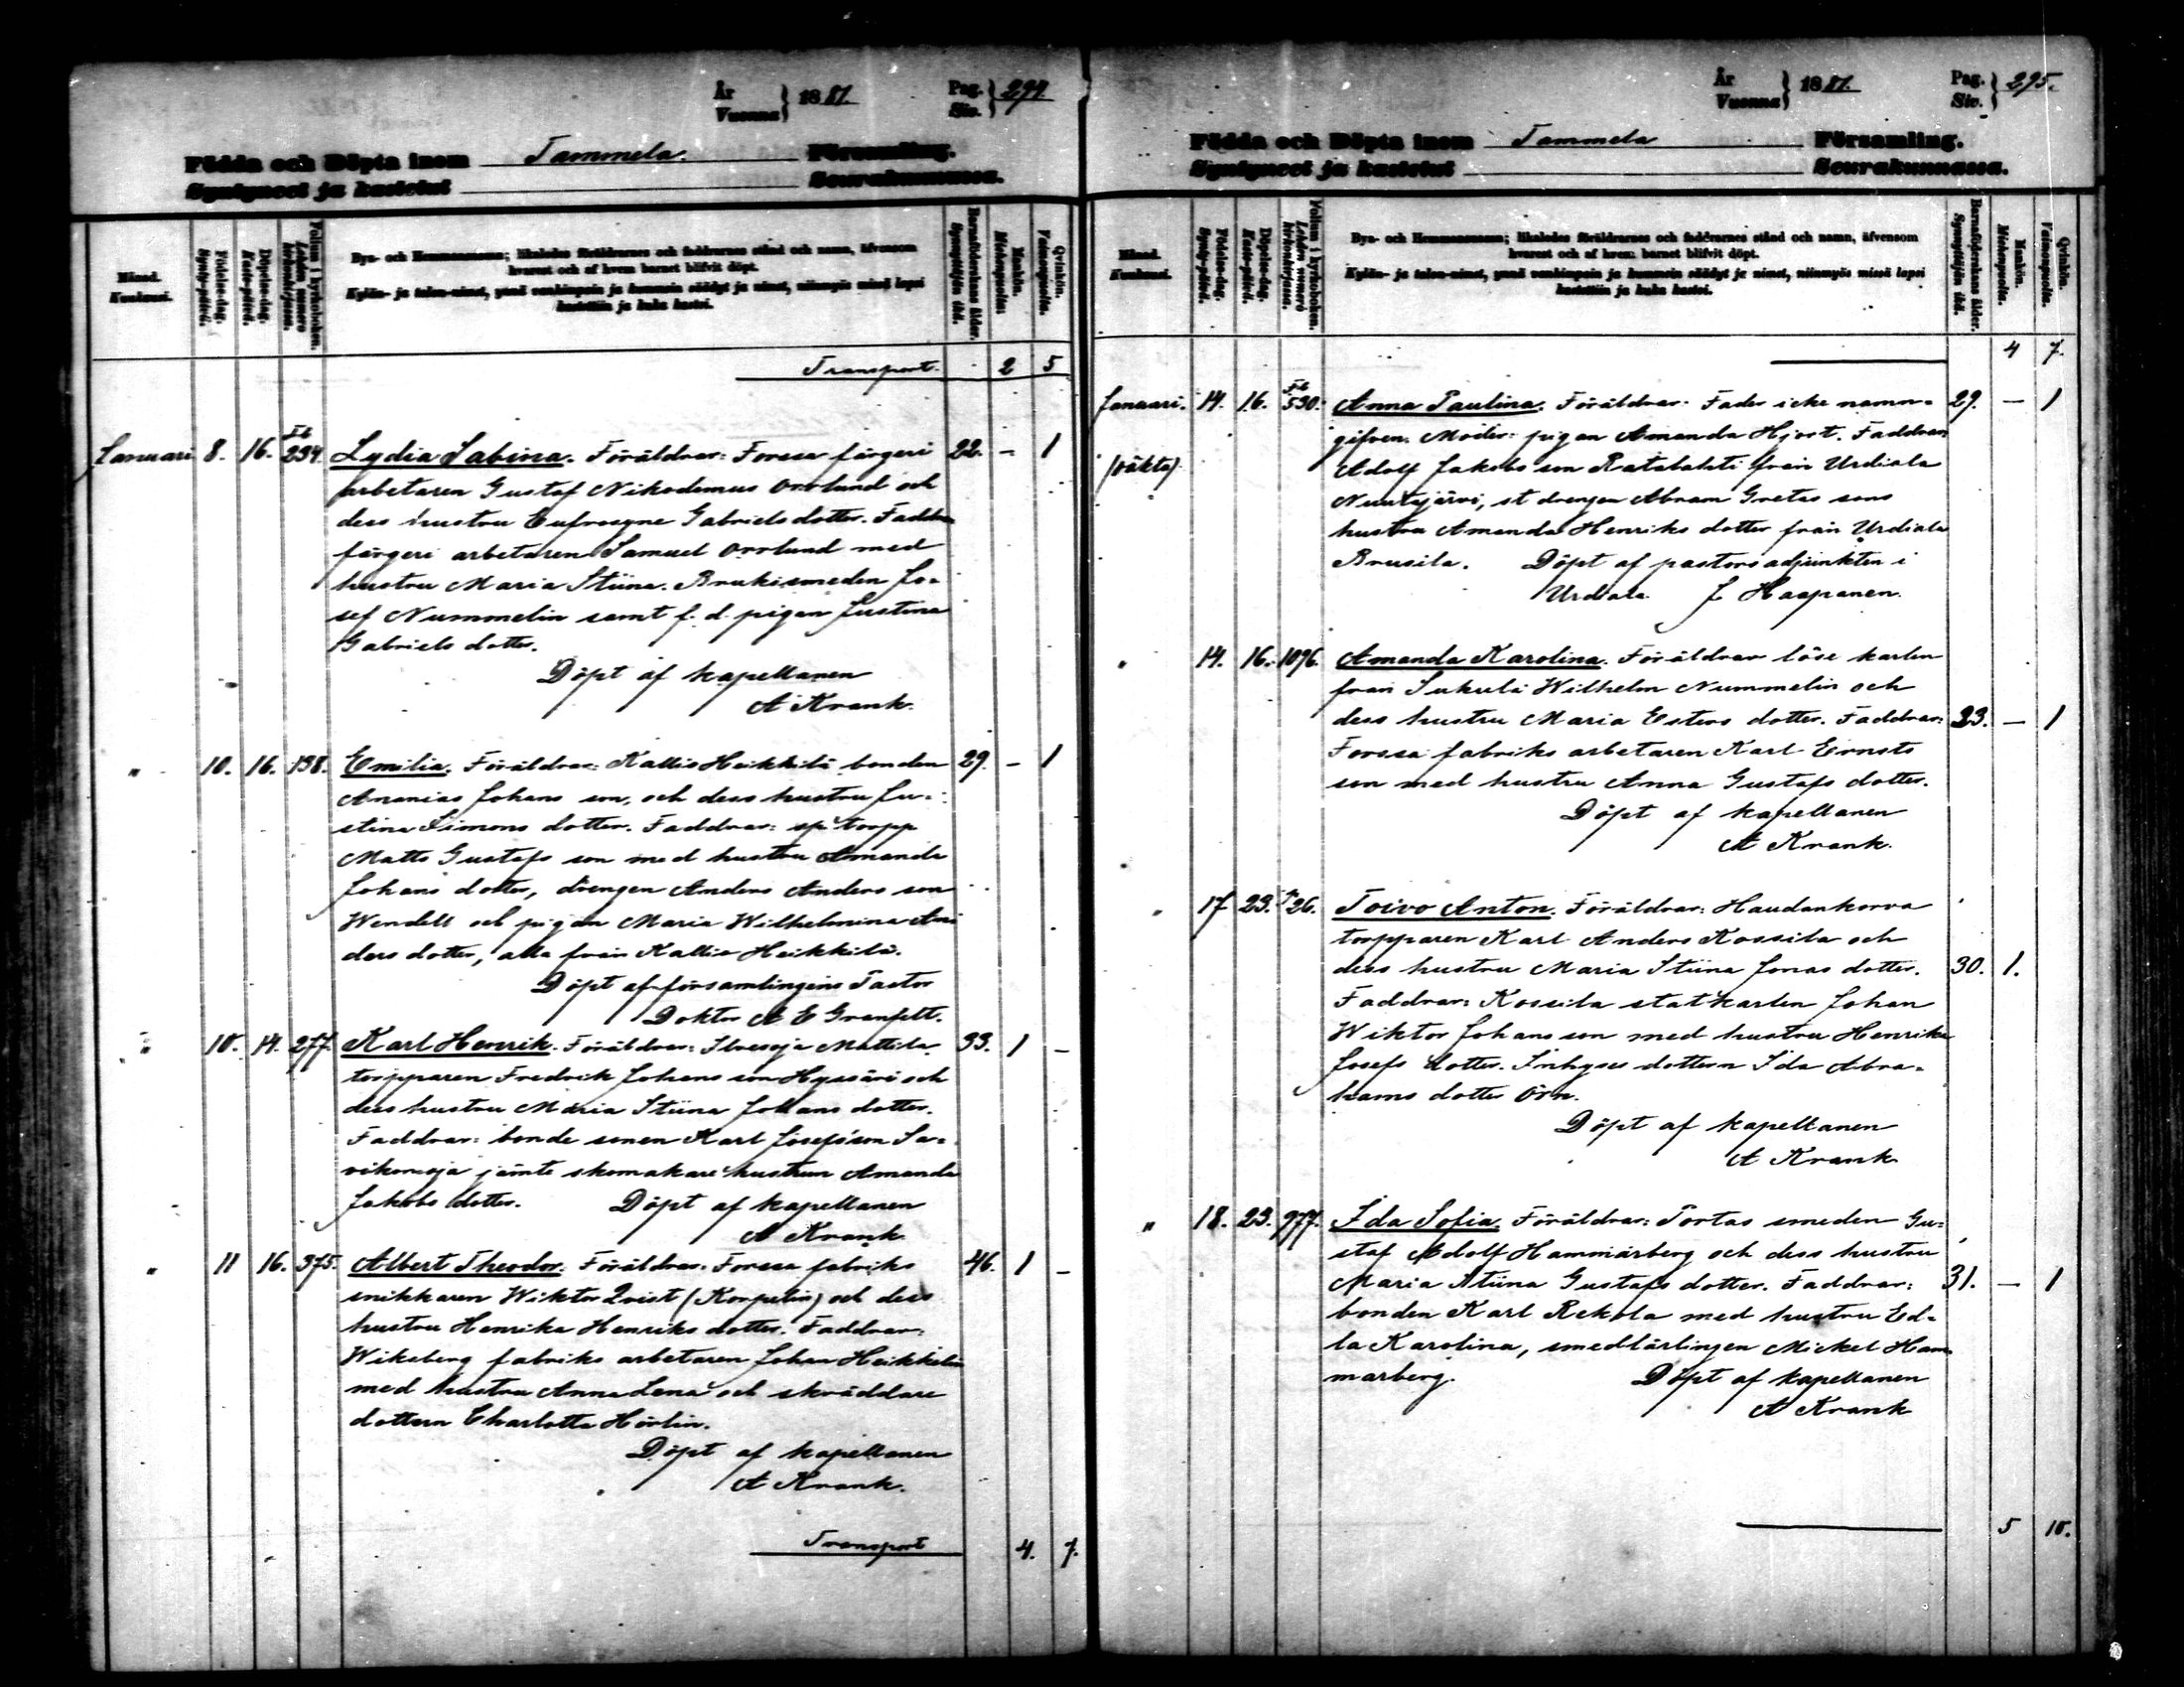 År
Vuonna } 1881.
Pag.
Siv. } 294.
Födda och Döpta inom Tammela. Församling.
Syntyneet ja kastetut Seurakunnassa.
Månad. Kuukausi.
Födelse-dag. Synty-päivä.
Döpelse-dag. Kaste-päivä.
Folium i kyrkoboken. Lehden numero kirkonkirjassa.
Bya- och Hemmansnamn; likaledes föräldrarnes och faddrarnes stånd och namn, äfvensom
hvarest och af hvem barnet blifvit döpt.
Kylän- ja talon-nimet, ynnä vanhimpain ja kummein säädyt ja nimet, niinmyös missä lapsi
kastettiin ja kuka kastoi.
Barnaföderskans ålder. Synnyttäjän ikä.
Mankön. Miehenpuolta.
Qvinkön. Vaimonpuolta.
Transport. 2 5
Januari 8. 16. 234. Lydia Sabina. Föräldrar: Forssa färgeri 22. - 1
arbetaren Gustaf Nikodemus Orrlund och
dess hustru Eufrosyne Gabriels dotter. Faddrar
färgeri arbetaren Samuel Orrlund med
hustru Maria Stiina. Bruksmeden Jo-
sef Nummelin samt f. d. pigan Justina
Gabriels dotter.
Döpt af kapellanen
A Krank.
" 10. 16. 138. Emilia. Föräldrar: Kallio Heikkilä bonden 29. - 1
Ananias Johans son, och dess hustru Ju-
stina Simons dotter. Faddrar: torpp
Matts Gustafs son med hustru Amanda
Johans dotter, drengen Anders Anders son
Wendell och pigan Maria Wilhelmina An
ders dotter, alla från Kallio Heikkilä.
Döpt af församlingens Pastor
Doktor A E Granfelt.
" 10. 14. 277. Karl Henrik. Föräldrar: Mattila 33. 1 -
torpparen Fredrik Johans son och
dess hustru Maria Stiina Johans dotter.
Faddrar: bonde sonen Karl Josefs son Sa-
vikonoja jämte skomakare hustrun Amanda
Jakobs dotter. Döpt af kapellanen
A Krank.
" 11 16. 375. Albert Theodor. Föräldrar: Forssa fabriks 46. 1 -
snikkaren Wiktor Qvist (Korpelin) och dess
hustru Henrika Henriks dotter. Faddrar:
Wiksberg fabriks arbetaren Johan Heikkelin
med hustru Anna Lena och skräddare
dottern Charlotta Hörlin.
Döpt af kapellanen
A Krank.
Transport 4. 7.
År
Vuonna } 1881.
Pag.
Siv. } 295.
Födda och Döpta inom Tammela Församling.
Syntyneet ja kastetut Seurakunnassa.
Månad. Kuukausi.
Födelse-dag. Synty-päivä.
Döpelse-dag. Kaste-päivä.
Folium i kyrkoboken. Lehden numero kirkonkirjassa.
Bya- och Hemmansnamn; likaledes föräldrarnes och faddrarnes stånd och namn, äfvensom
hvarest och af hvem barnet blifvit döpt.
Kylän- ja talon-nimet, ynnä vanhimpain ja kummein säädyt ja nimet, niinmyös missä lapsi
kastettiin ja kuka kastoi.
Barnaföderskans ålder. Synnyttäjän ikä.
Mankön. Miehenpuolta.
Qvinkön. Vaimonpuolta.
4 7.
Januari. 14. 16. 530. Anna Paulina. Föräldrar: Fader icke namn- 29. - 1
gifven. Moder: pigan Amanda Hjort. Faddrar
(oäkta) Adolf Jakobs son Ratalahti från Urdiala
Nuutajärvi, st drengen Abram Gretas sons
hustru Amanda Henriks dotter från Urdiala
Brusila. Döpt af pastorsadjunkten i
Urdiala J Haapanen.
" 14. 16. 1096. Amanda Karolina. Föräldrar löse karlen
från Sukula Wilhelm Nummelin och
dess hustru Maria Esters dotter. Faddrar: 23. - 1
Forssa fabriks arbetaren Karl Ernsts
son med hustru Anna Gustafs dotter.
Döpt af kapellanen
A Krank.
" 17 23. 26. Toivo Anton. Föräldrar: Haudankorva
torpparen Karl Anders Kossila och
dess hustru Maria Stiina Jonas dotter. 30. 1.
Faddrar: Kossila statkarlen Johan
Wiktor Johans son med hustru Henrika
Josefs dotter. Inhyses dottern Ida Abra-
hams dotter Örn.
Döpt af kapellanen
A Krank
" 18. 23. 977. Ida Sofia. Föräldrar: Portas smeden Gu-
staf Adolf Hammarberg och dess hustru
Maria Stiina Gustafs dotter. Faddrar: 31. - 1
bonden Karl Rekola med hustru Ed-
la Karolina, smedlärlingen Mickel Ham-
marberg. Döpt af kapellanen
A Krank
5 10.